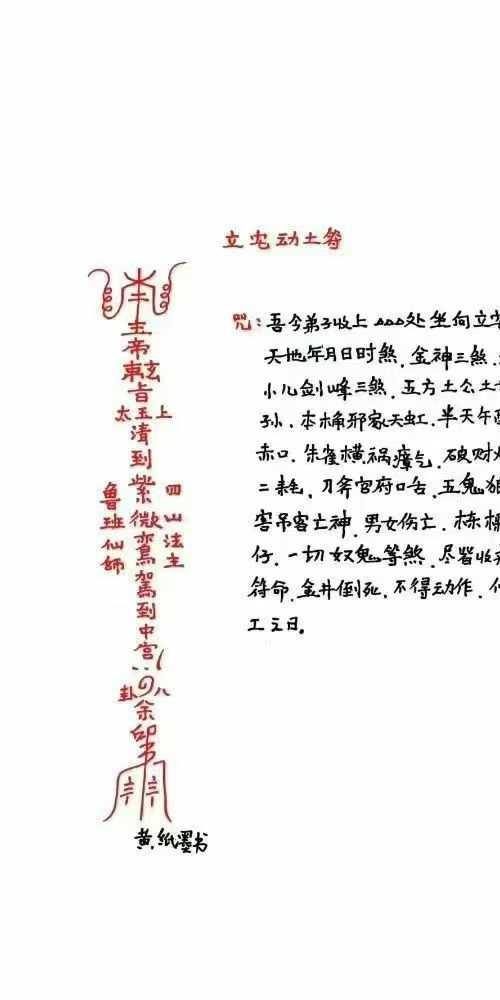 立宅动土符
玉
帝
敕玄
旨
太玉上
清
到
紫
微
鸾
驾
到
中
宫
卦八
鲁班仙师
四山法主
黄纸墨书
咒：吾今弟子收上△△△处坐向立宅
天地年月日时煞．金神三煞．
小儿剑峰三煞．五方土公土
孙．本桷邪家天虹．半天午酉
赤口．朱雀横祸瘴气．破财
二耗．刀斧官府口舌．五鬼狼
客吊客亡神．男女伤亡．栋桷
仔．一切奴鬼等煞．尽皆收
符命．金井倒死．不得动作．
工之日。